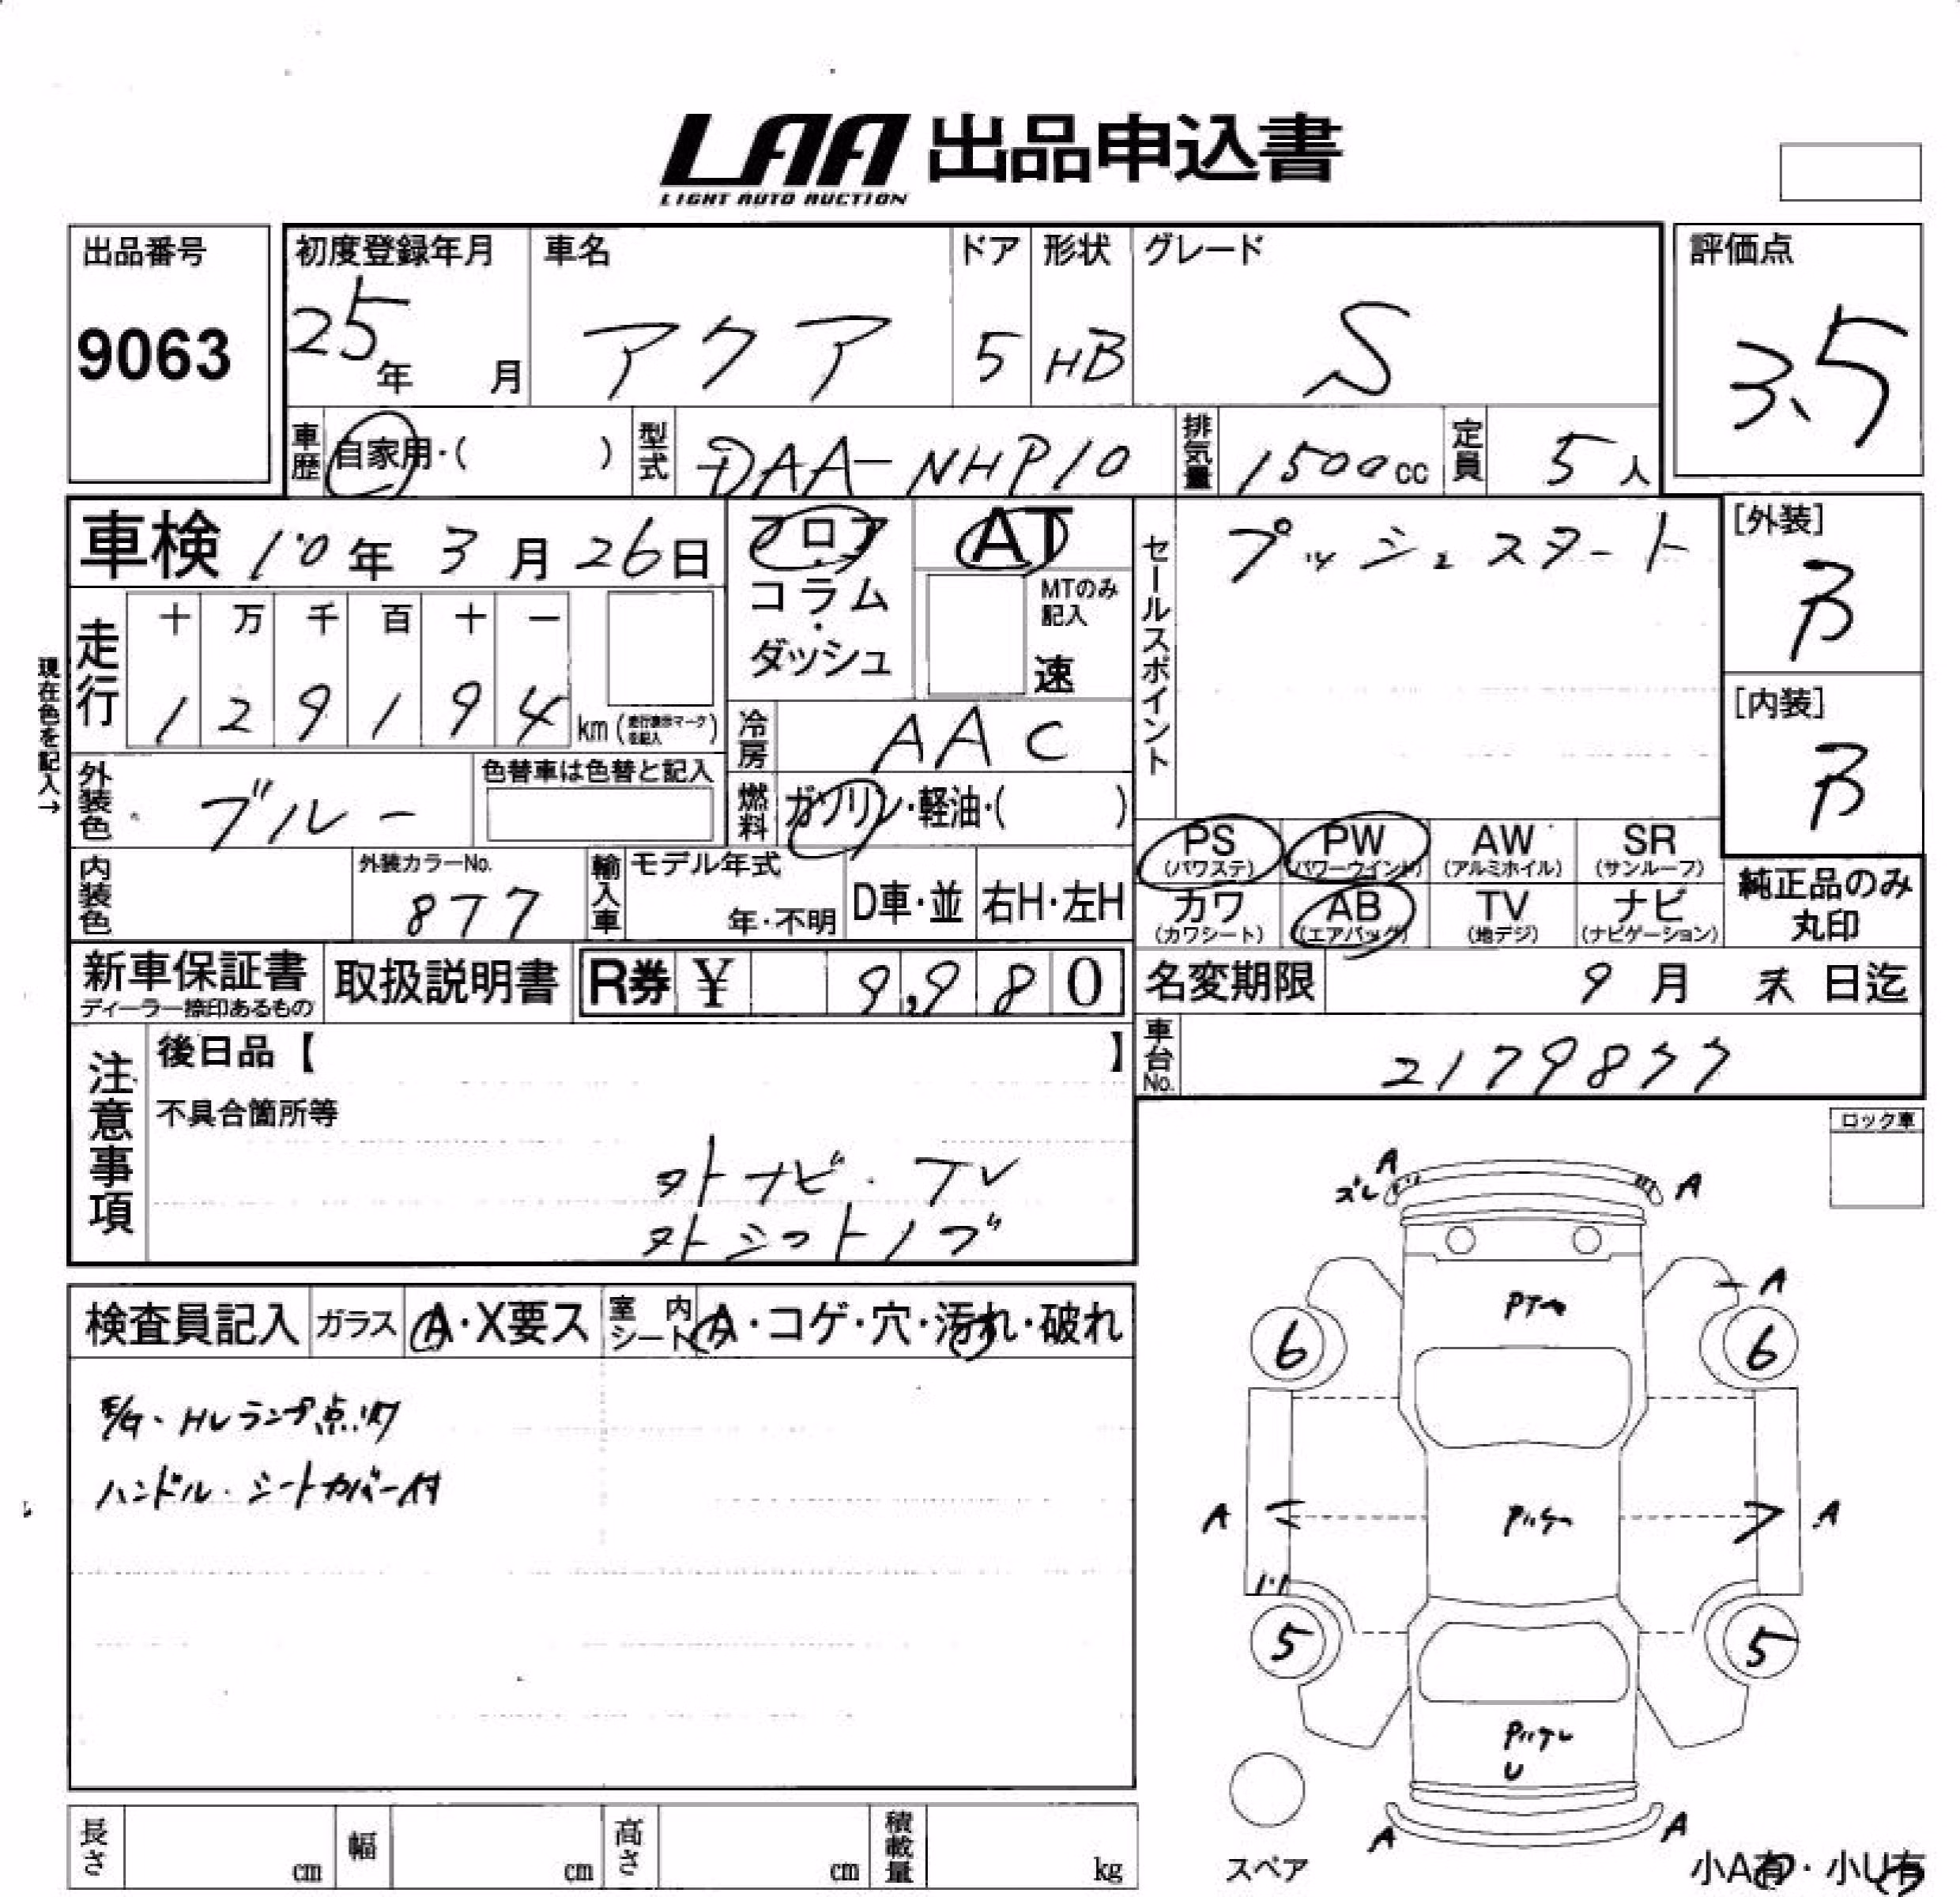 LAA 出品申込書
LIGHT AUTO AUCTION
出品番号
9063
初度登録年月
25年 月
車名
アクア
ドア
5
形状
HB
グレード
S
評価点
3.5
車歴 自家用・( )
型式 DAA-NHP10
排気量 1500cc
定員 5人
車検 10年 3月 26日
フロア・コラム・ダッシュ
AT
MTのみ記入
速
セールスポイント
プッシュスタート
[外装]
B
[内装]
B
現在色を記入→
走行
十 万 千 百 十 一
1 2 9 1 9 4 km (走行表示マークを記入)
冷房 AAC
外装色 ブルー
色替車は色替と記入
燃料 ガソリン・軽油・( )
PS (パワステ)
PW (パワーウインド)
AW (アルミホイル)
SR (サンルーフ)
カワ (カワシート)
AB (エアバッグ)
TV (地デジ)
ナビ (ナビゲーション)
純正品のみ丸印
内装色
外装カラーNo.
877
輸入車
モデル年式
年・不明
D車・並
右H・左H
新車保証書
ディーラー捺印あるもの
取扱説明書
R券 ¥ 9,980
名変期限 9月 末日迄
車台No. 2179877
注意事項
後日品【 】
不具合箇所等
外ナビ・TV
外シフトノブ
ロック車
検査員記入
ガラス A・X要ス
室内シート A・コゲ・穴・汚れ・破れ
E/G・HVランプ点灯
ハンドル・シートカバー付
A
ズレ
A
A
6
6
A
A
5
5
U
A
A
スペア
長さ cm
幅 cm
高さ cm
積載量 kg
小A有・小U有